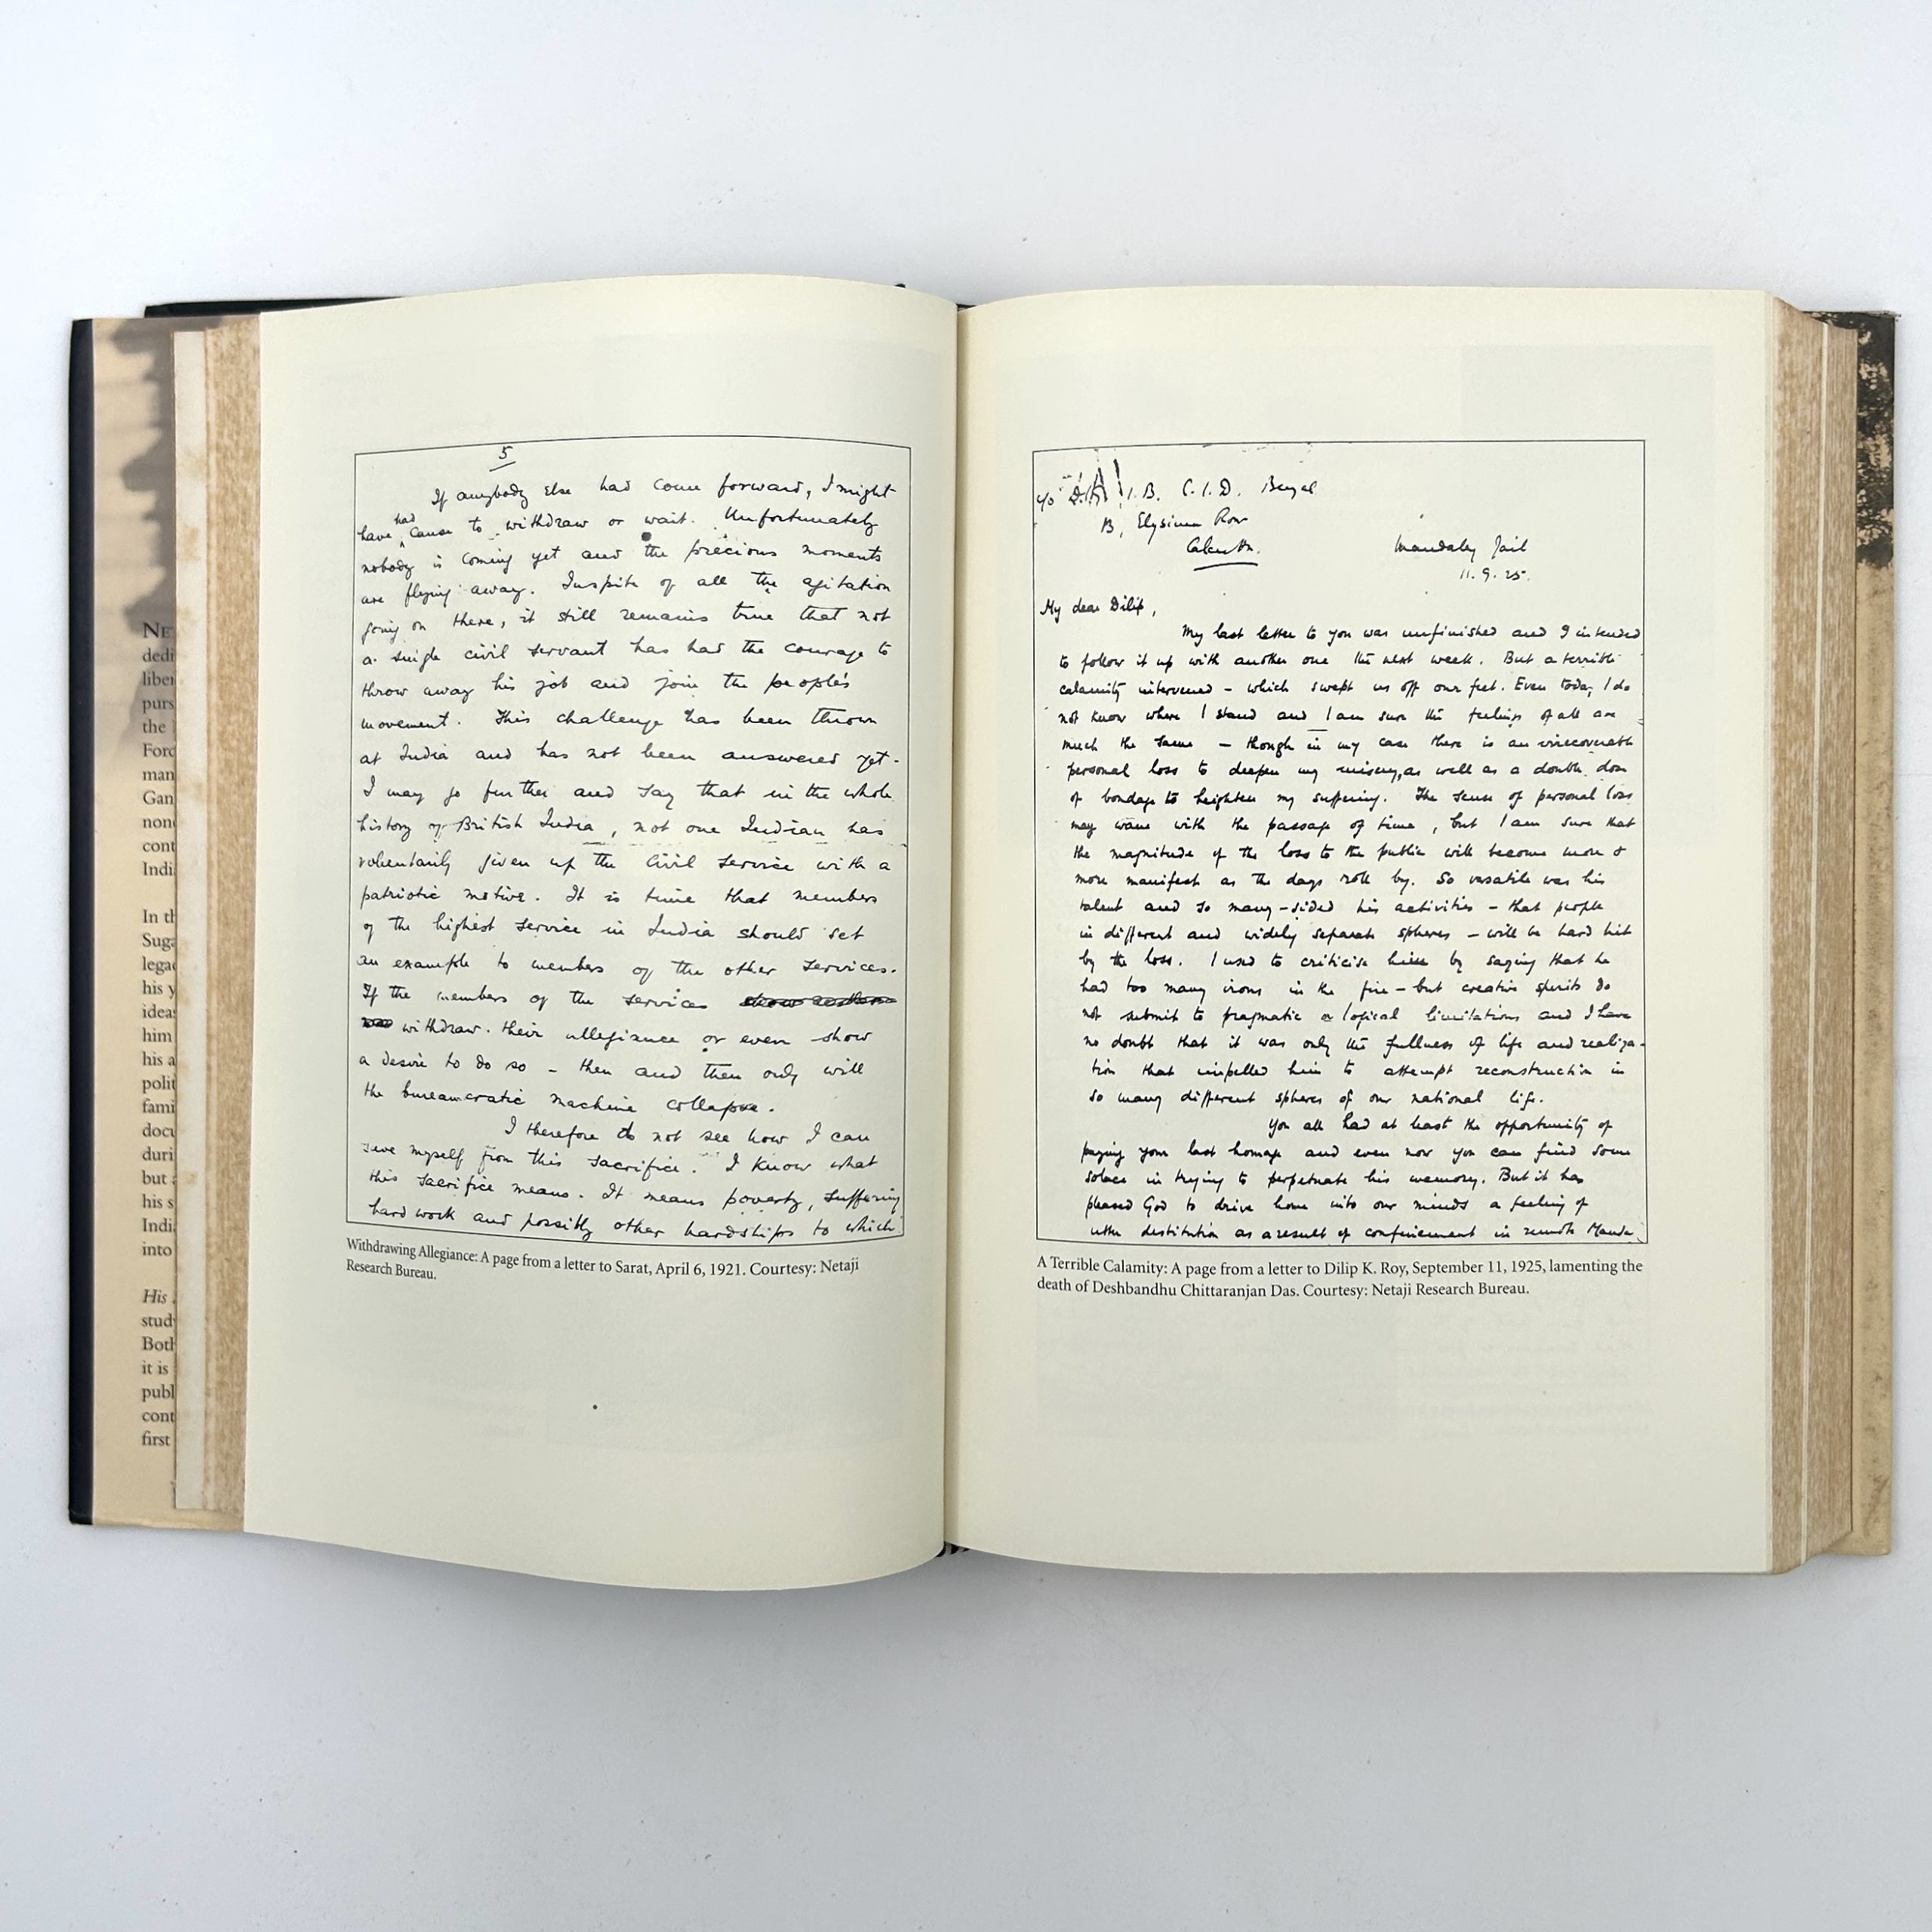 NE
dedi
liber
purs
the
Ford
man
Gan
non
cont
Indi
In th
Suga
legac
his y
idea
him
his a
polit
fami
docu
duri
but
his s
Indi
into
His
stud
Both
it is
publ
cont
first
5
If anybody else had come forward, I might
had
have cause to withdraw or wait. Unfortunately
nobody is coming yet and the precious moments
are flying away. Inspite of all the agitation
going on there, it still remains true that not
a single civil servant has had the courage to
throw away his job and join the people's
movement. This challenge has been thrown
at India and has not been answered yet.
I may go further and say that in the whole
history of British India, not one Indian has
voluntarily given up the Civil Service with a
patriotic motive. It is time that members
of the highest service in India should set
an example to members of the other services.
If the members of the services
withdraw their allegiance or even show
a desire to do so – then and then only will
the bureaucratic machine collapse.
I therefore do not see how I can
save myself from this sacrifice. I know what
this sacrifice means. It means poverty, suffering
hard work and possibly other hardships to which
Withdrawing Allegiance: A page from a letter to Sarat, April 6, 1921. Courtesy: Netaji
Research Bureau.
c/o D.I.G. I.B. C.I.D. Bengal
13, Elysium Row
Calcutta.
Mandalay Jail
11.9.25.
My dear Dilip,
My last letter to you was unfinished and I intended
to follow it up with another one the next week. But a terrible
calamity intervened – which swept us off our feet. Even today I do
not know where I stand and I am sure the feelings of all are
much the same – though in my case there is an irrecoverable
personal loss to deepen my misery, as well as a double dose
of bondage to heighten my suffering. The sense of personal loss
may wane with the passage of time, but I am sure that
the magnitude of the loss to the public will become more &
more manifest as the days roll by. So versatile was his
talent and so many-sided his activities – that people
in different and widely separate spheres – will be hard hit
by the loss. I used to criticise him by saying that he
had too many irons in the fire – but creative spirits do
not submit to pragmatic or logical limitations and I have
no doubt that it was only the fullness of life and realiza-
tion that impelled him to attempt reconstruction in
so many different spheres of our national life.
You all had at least the opportunity of
paying your last homage and even now you can find some
solace in trying to perpetuate his memory. But it has
pleased God to drive home into our minds a feeling of
utter destitution as a result of confinement in remote Manda
A Terrible Calamity: A page from a letter to Dilip K. Roy, September 11, 1925, lamenting the
death of Deshbandhu Chittaranjan Das. Courtesy: Netaji Research Bureau.